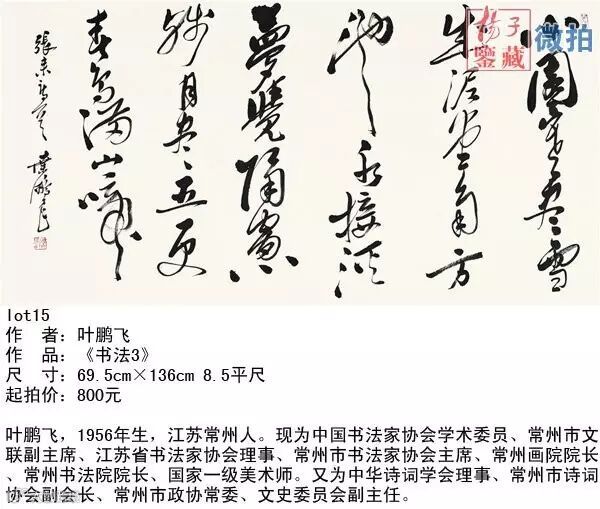 小園寒尽雪
成泥堂角方
池水接溪
夢覺隔窗
残月尽五更
春鸟满山啼
張耒詩
葉鵬飞
楊子
鑒藏
微拍
lot15
作 者:叶鹏飞
作 品:《书法3》
尺 寸:69.5cm×136cm 8.5平尺
起拍价:800元
叶鹏飞,1956年生,江苏常州人。现为中国书法家协会学术委员、常州市文
联副主席、江苏省书法家协会理事、常州市书法家协会主席、常州画院院长
、常州书法院院长、国家一级美术师。又为中华诗词学会理事、常州市诗词
协会副会长、常州市政协常委、文史委员会副主任。